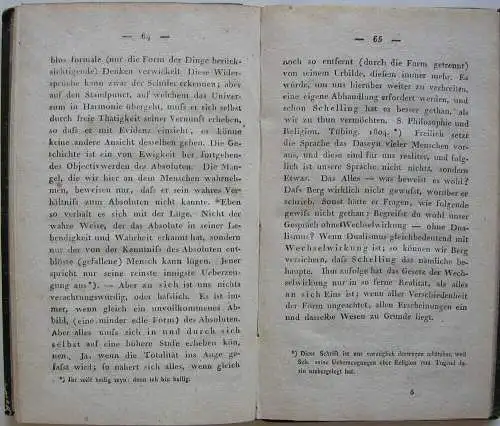 — 64 —
blos formale (nur die Form der Dinge berück-
sichtigende) Denken verwickelt. Diese Wider-
sprüche kann zwar der Schüler erkennen; aber
auf den Standpunct, auf welchem das Univer-
sum in Harmonie übergeht, muſs er sich selbst
durch freie Thätigkeit seiner Vernunft erheben,
so daſs er mit Evidenz einsieht, es könne
keine andere Ansicht desselben geben. Die Ge-
schichte ist ein von Ewigkeit her fortgehen-
des Objectivwerden des Absoluten. Die Män-
gel, die wir hier an dem Menschen wahrneh-
men, beweisen nur, daſs er sein wahres Ver-
hältniſs zum Absoluten nicht kannte. Eben
so verhält es sich mit der Lüge. Nicht der
wahre Weise, der das Absolute in seiner Le-
bendigkeit und Wahrheit erkannt hat, sondern
nur der von der Kenntniſs des Absoluten ent-
blöste (gefallene) Mensch kann lügen. Jener
spricht nur seine reinste innigste Ueberzeu-
gung aus*). — Aber an sich ist uns nichts
verachtungswürdig, oder häſslich. Es ist im-
mer, wenn gleich ein unvollkommenes Ab-
bild, (eine minder edle Form) des Absoluten.
Aber alles muſs sich in und durch sich
selbst auf eine höhere Stufe erheben kön-
nen. Ja, wenn die Totalität ins Auge ge-
faſst wird; so nähert sich alles, wenn gleich
*) Ihr sollt heilig seyn, denn ich bin heilig.
— 65 —
noch so entfernt (durch die Form getrennt)
von seinem Urbilde, diesem immer mehr. Es
würde, um uns hierüber weiter zu verbreiten,
eine eigene Abhandlung erfordert werden, und
schon Schelling hat es besser gethan, als
wir zu thun vermöchten. S. Philosophie und
Religion. Tübing. 1804. *) Freilich setzt
die Sprache das Daseyn vieler Menschen vor-
aus, und diese sind für uns realiter, und folg-
lich ist unsere Sprache nicht nichts, sondern
Etwas. Das Alles — was beweist es wohl?
Daſs Berg wirklich nicht gewuſst, worüber er
schrieb. Sonst hätte er Fragen, wie folgende
gewiſs nicht gethan: Begreifst du wohl unser
Gespräch ohne Wechselwirkung — ohne Dua-
lismus? Wenn Dualismus gleichbedeutend mit
Wechselwirkung ist: so können wir Berg
versichern, daſs Schelling das nämliche be-
haupte. Ihm zufolge hat das Gesetz der Wech-
selwirkung nur in so ferne Realität, als alles
an sich Eins ist; wenn aller Verschiedenheit
der Form ungeachtet, allen Erscheinungen ein
und dasselbe Wesen zu Grunde liegt.
*) Diese Schrift ist uns vorzüglich deswegen schätzbar, weil
Sch. seine Ueberzeugungen über Religion und Tugend da-
rin niedergelegt hat.
6